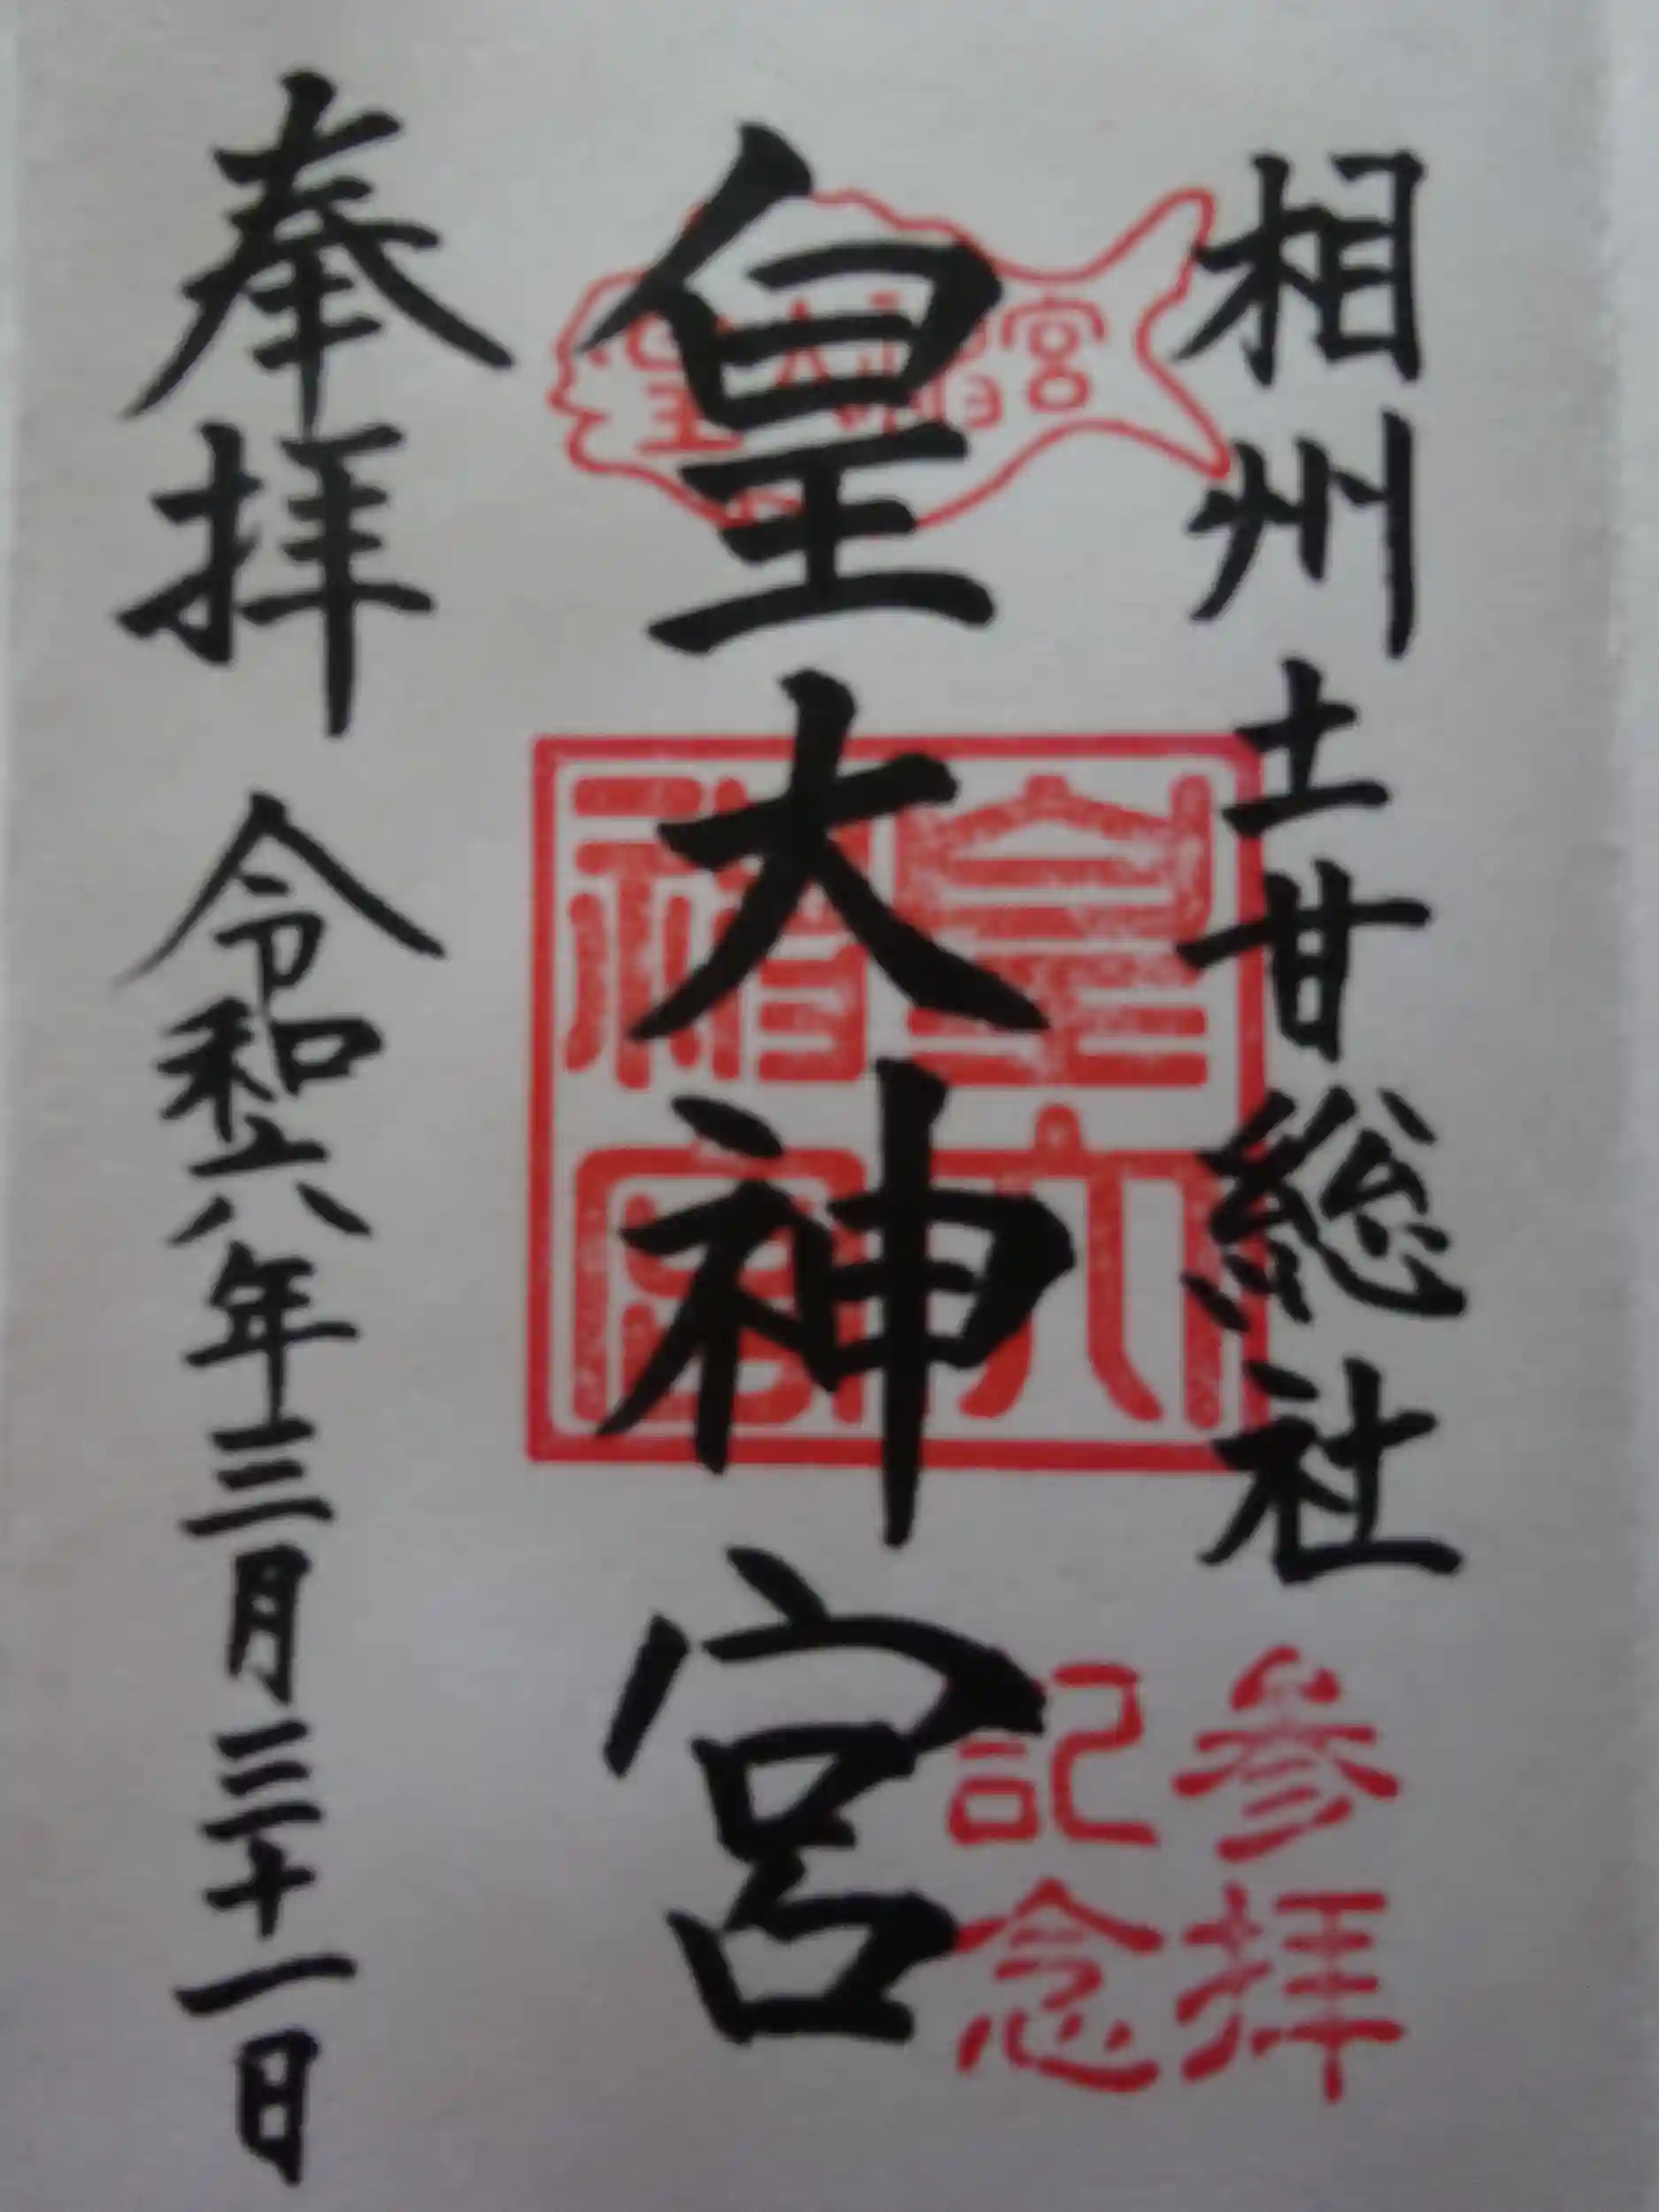 相州土甘総社
皇大神宮
奉拝 令和六年三月三十一日
皇大神宮
皇大神宮
参拝
記念